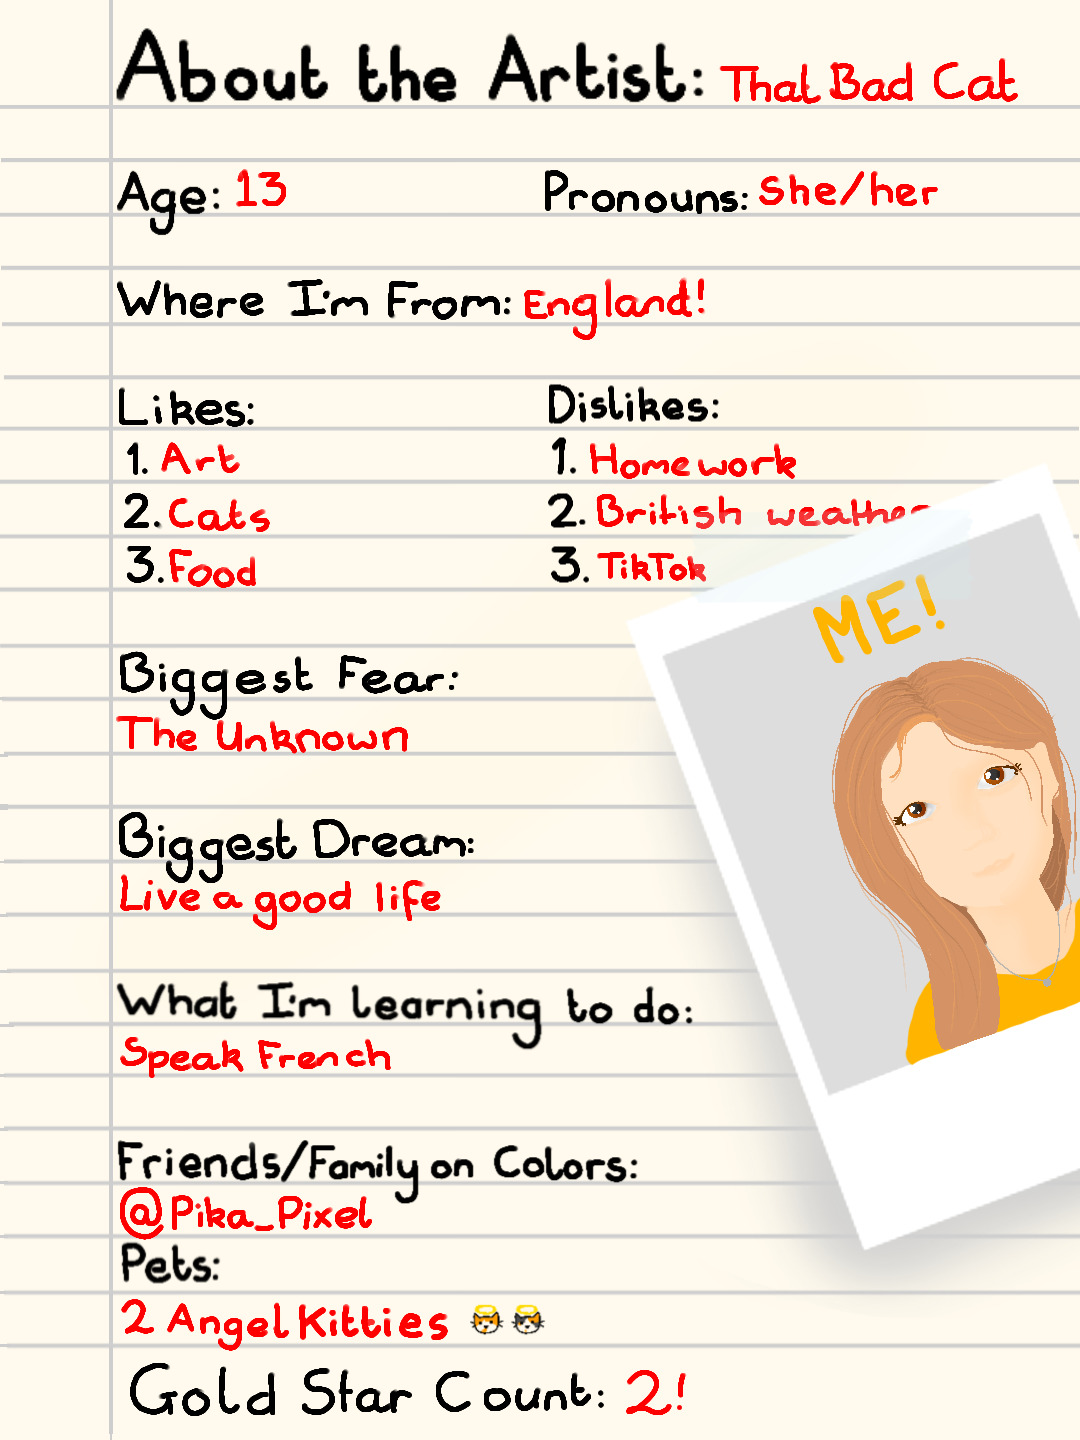 About the Artist: That Bad Cat
Age: 13 Pronouns: She/her
Where I'm From: England!
Likes: Dislikes:
1. Art 1. Homework
2. Cats 2. British weather
3. Food 3. TikTok
ME!
Biggest Fear:
The Unknown
Biggest Dream:
Live a good life
What I'm learning to do:
Speak French
Friends/Family on Colors:
@Pika_Pixel
Pets:
2 Angel Kitties
Gold Star Count: 2!